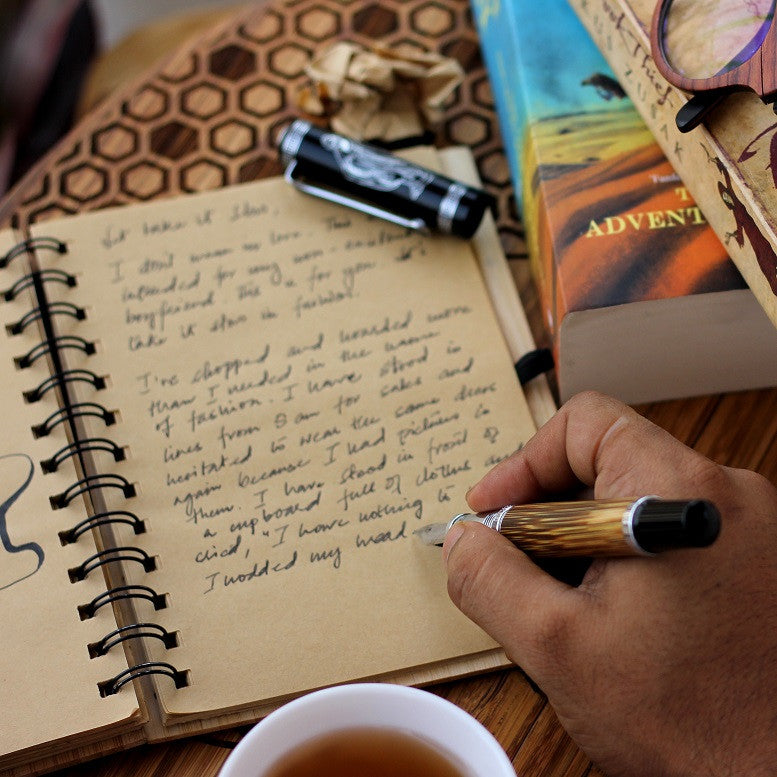 Let take it slow,
I don't warn no love. This
intended for my non-existent
boyfriend. This is for you. Let's
take it slow in fashion.
I've shopped and hoarded more
than I needed in the name
of fashion. I have stood in
lines from 8 am for sales and
hesitated to wear the same dress
again because I had pictures in
them. I have stood in front of
a cupboard full of clothes and
cried, "I have nothing to
I nodded my head
ADVENT
US ZUSAK